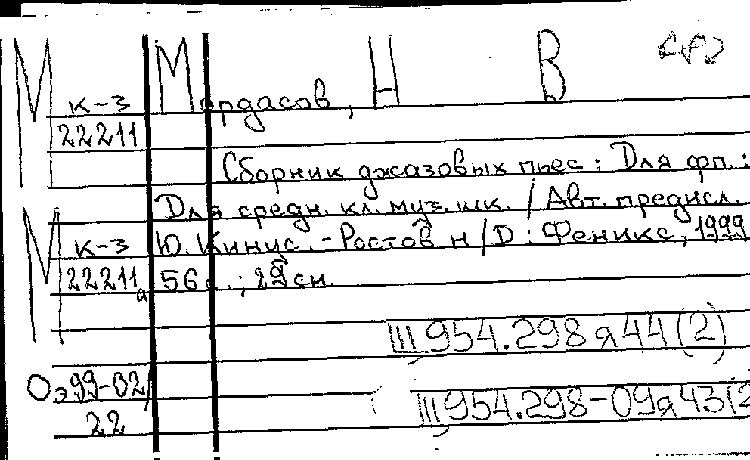 М
к-3
22211
Мордасов, Н В
Сборник джазовых пьес : Для фп. :
Для средн. кл. муз. шк. / Авт. предисл.
М
к-3
22211а
Ю. Кинус. - Ростов н/Д : Феникс, 1999
56 с. ; 29 см.
Ш 954.298я44(2)
Оэ99-02/
22
Ш 954.298-09я43(2